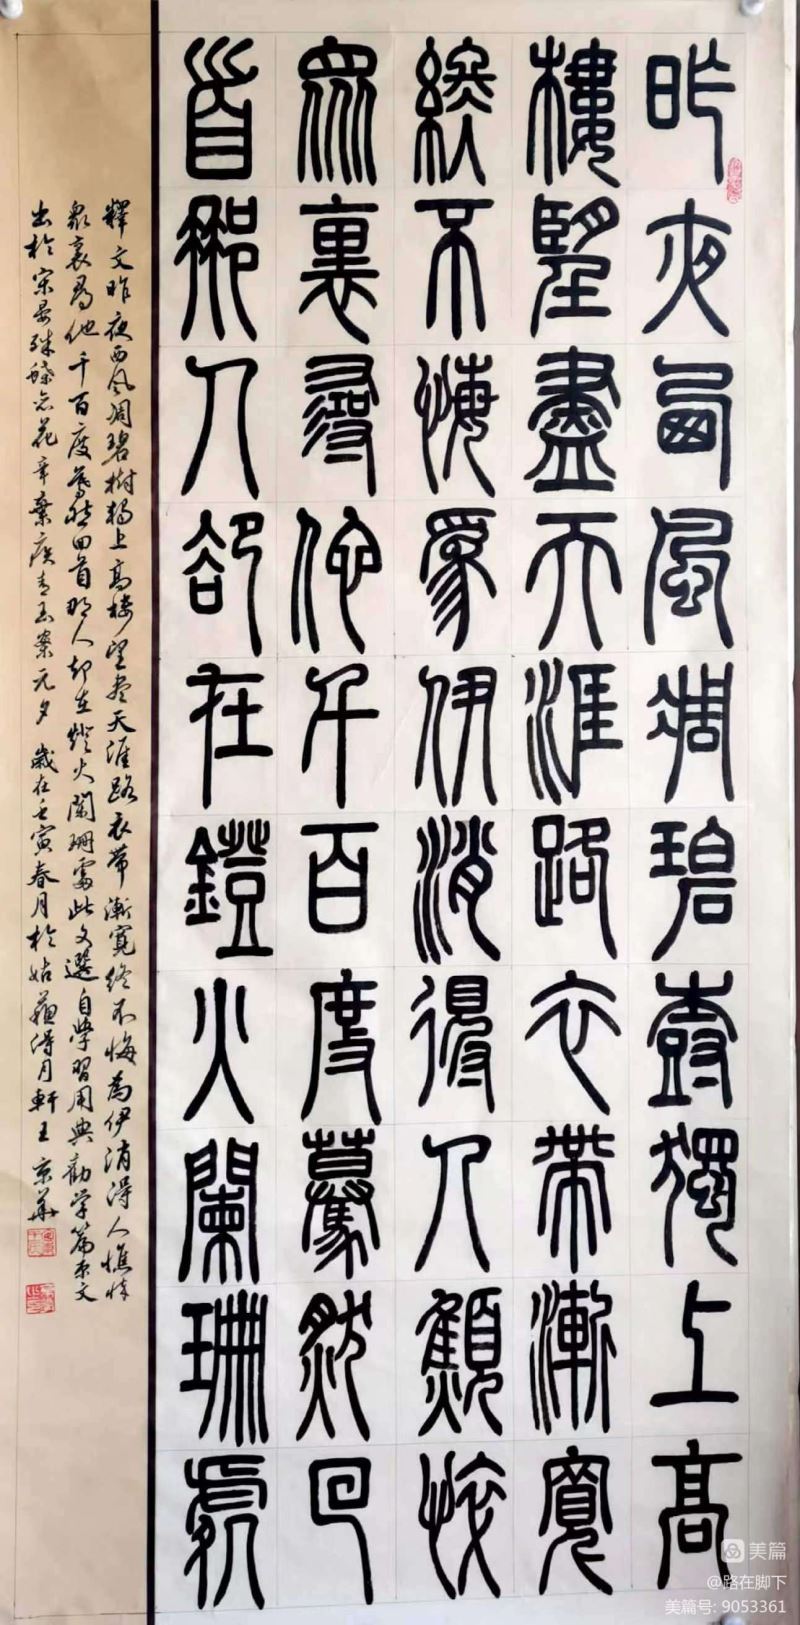 昨夜西風凋碧樹獨上高
樓望盡天涯路衣帶漸寬
終不悔為伊消得人顦悴
眾裏尋他千百度驀然回
首那人卻在鐙火闌珊處
釋文昨夜西风凋碧樹獨上高楼望尽天涯路衣带漸寬终不悔為伊消得人憔悴
眾裏尋他千百度驀然回首那人却在燈火闌珊處此文選自學習用典勸学篇原文
出於宋晏殊蝶恋花辛棄疾青玉案元夕 歲在壬寅春月於姑蘇得月軒王京華
美篇
@路在脚下
美篇号: 9053361